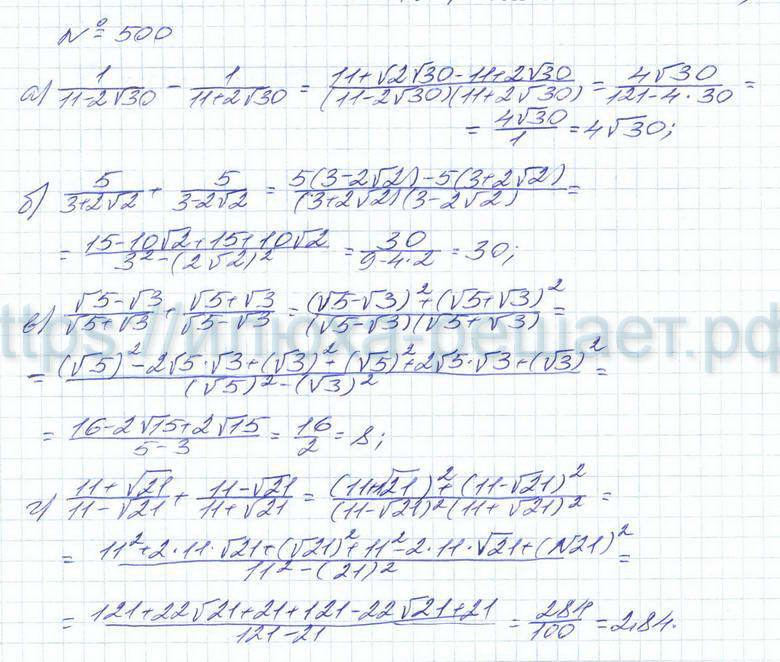 № 500
а) 1/(11-2√30) - 1/(11+2√30) = (11+√2√30-11+2√30)/((11-2√30)(11+2√30)) = 4√30/(121-4·30) =
= 4√30/1 = 4√30;
б) 5/(3+2√2) + 5/(3-2√2) = (5(3-2√2)-5(3+2√2))/((3+2√2)(3-2√2)) =
= (15-10√2+15+10√2)/(3²-(2√2)²) = 30/(9-4·2) = 30;
в) (√5-√3)/(√5+√3) + (√5+√3)/(√5-√3) = ((√5-√3)²+(√5+√3)²)/((√5-√3)(√5+√3)) =
https://илюха-решает.рф
= ((√5)²-2√5·√3+(√3)²+(√5)²+2√5·√3+(√3)²)/((√5)²-(√3)²) =
= (16-2√15+2√15)/(5-3) = 16/2 = 8;
г) (11+√21)/(11-√21) + (11-√21)/(11+√21) = ((11+√21)²+(11-√21)²)/((11-√21)²(11+√21)²) =
= (11²+2·11·√21+(√21)²+11²-2·11·√21+(√21)²)/(11²-(21)²) =
= (121+22√21+21+121-22√21+21)/(121-21) = 284/100 = 2,84.